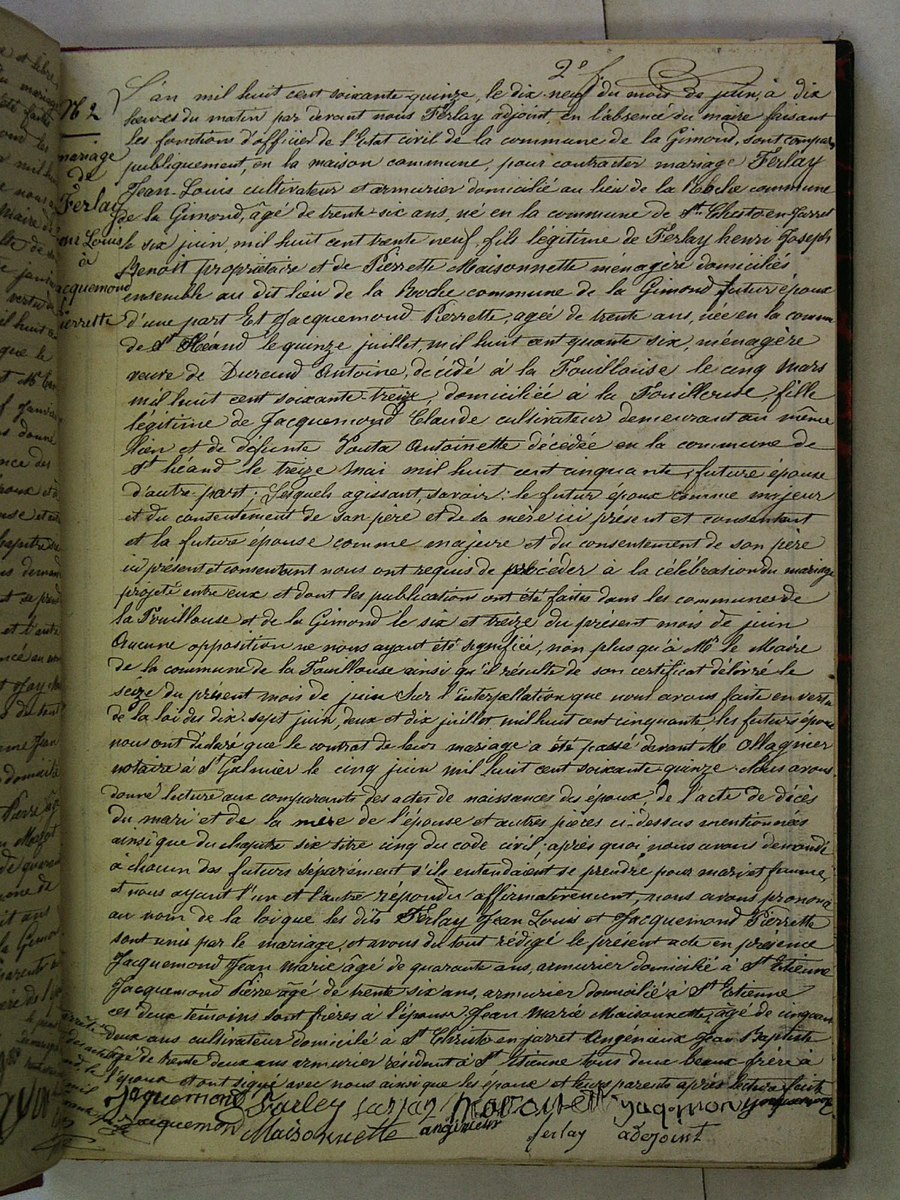 2º
Nº 2
mariage
de
Ferlay
Jean Louis
à
Jacquemond
Pierrette
L'an mil huit cent soixante-quinze, le dix neuf du mois de juin, à dix
heures du matin par devant nous Ferlay adjoint en l'absence du maire faisant
les fonctions d'officier de l'Etat civil de la commune de la Gimond, sont comparu
publiquement, en la maison commune, pour contracter mariage Ferlay
Jean-Louis cultivateur et armurier domicilié au lieu de la Roche commune
de la Gimond, âgé de trente-six ans, né en la commune de St Christo-en-Jarret
le six juin, mil huit cent trente neuf, fils légitime de Ferlay henri Joseph
Benoit propriétaire et de Pierrette Maisonnette ménagère domiciliés
ensemble au dit lieu de la Roche commune de la Gimond futur époux
d'une part Et Jacquemond Pierrette, agée de trente ans, née en la commune
de St Héand le quinze juillet, mil huit cent quarante six, ménagère
veuve de Durand Antoine, décédé à la Fouillouse le cinq mars
mil huit cent soixante-treize, domiciliée à la Fouillouse, fille
légitime de Jacquemond Claude cultivateur demeurant au même
lieu et de défunte Antoinette décédée en la commune de
St héand le treize mai mil huit cent cinquante, future épouse
d'autre part; Lesquels agissant, savoir: le futur époux comme majeur
et du consentement de son père et de sa mère ici présent et consentant
et la future epouse comme majeure et du consentement de son père
ici présent et consentant nous ont requis de procéder à la célébration du mariage
projeté entre eux et dont les publications ont été faites dans les communes de
la Fouillouse et de la Gimond le six et treize du présent mois de juin
Aucune opposition ne nous ayant été signifiée, non plus qu'à Mr le Maire
de la commune de la Fouillouse ainsi qu'il résulte de son certificat délivré le
seize du présent mois de juin Sur l'interpellation que nous avons faite en vertu
de la loi des dix-sept juin, deux et dix juillet mil huit cent cinquante, les futurs époux
nous ont déclaré que le contrat de leur mariage a été passé devant Me Ollagnier
notaire à St Galmier le cinq juin mil huit cent soixante quinze. Nous avons
donné lecture aux comparants des actes de naissances des époux, de l'acte de décès
du mari et de la mère de l'épouse et autres pièces ci-dessus mentionnées
ainsi que du chapitre six titre cinq du code civil; après quoi nous avons demandé
à chacun des futurs séparément s'ils entendaient se prendre pour mari et femme;
et nous ayant l'un et l'autre répondu affirmativement, nous avons prononcé
au nom de la loi que les dits Ferlay Jean Louis et Jacquemond Pierrette
sont unis par le mariage, et avons du tout rédigé le présent acte en présence
Jacquemond Jean Marie âgé de quarante ans, armurier domicilié à St Etienne
Jacquemond Pierre âgé de trente-six ans, armurier domicilié à St Etienne
ces deux témoins sont frères à l'épouse, Jean Marie Maisonnette, âgé de cinquante
deux ans cultivateur domicilié à St Christo en jarret Angénieux Jean Baptiste
âgé de trente deux ans armurier résident à St Etienne tous deux beaux frère à
l'époux et ont signé avec nous ainsi que les époux et leurs parents après lecture faite
Jaquemond Farley Maisonette
Jacquemond Maisonnette angénieux ferlay adejoint